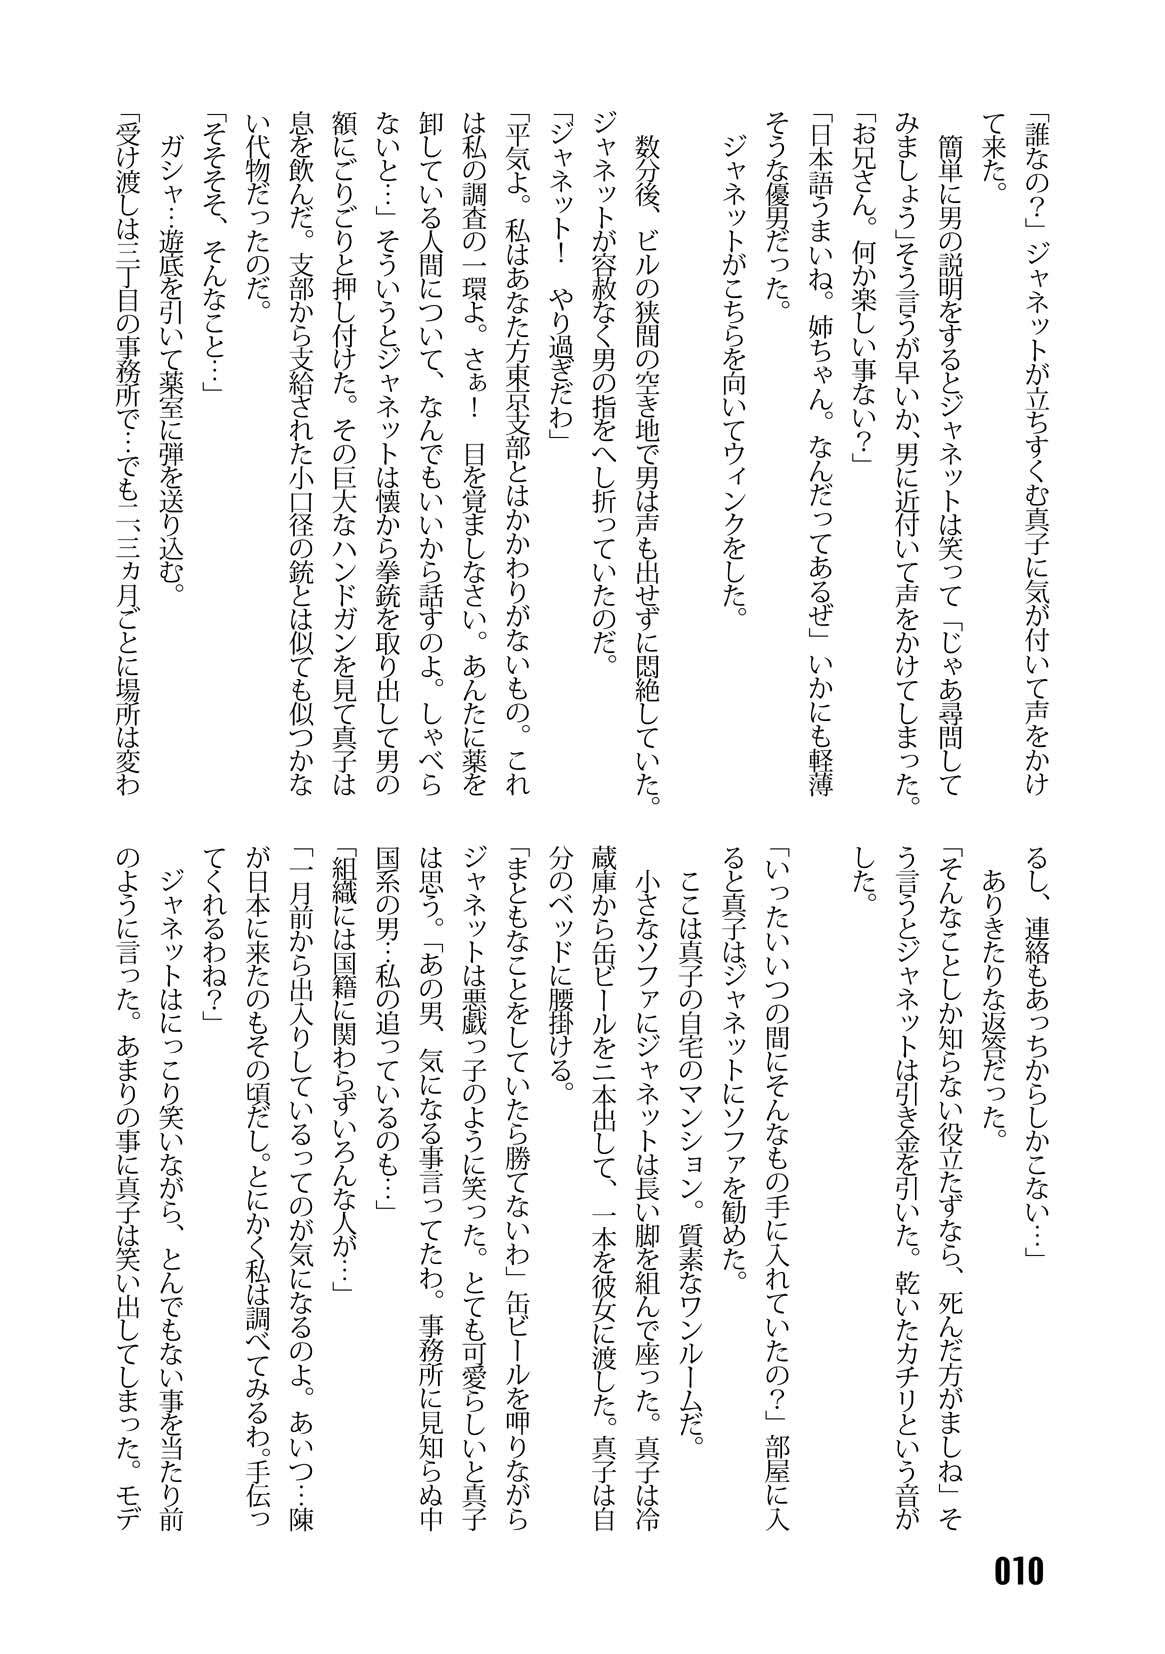 「誰なの？」ジャネットが立ちすくむ真子に気が付いて声をかけ
て来た。
　簡単に男の説明をするとジャネットは笑って「じゃあ尋問して
みましょう」そう言うが早いか、男に近付いて声をかけてしまった。
「お兄さん。何か楽しい事ない？」
「日本語うまいね。姉ちゃん。なんだってあるぜ」いかにも軽薄
そうな優男だった。
　ジャネットがこちらを向いてウィンクをした。
　数分後、ビルの狭間の空き地で男は声も出せずに悶絶していた。
ジャネットが容赦なく男の指をへし折っていたのだ。
「ジャネット！　やり過ぎだわ」
「平気よ。私はあなた方東京支部とはかかわりがないもの。これ
は私の調査の一環よ。さぁ！　目を覚ましなさい。あんたに薬を
卸している人間について、なんでもいいから話すのよ。しゃべら
ないと…」そういうとジャネットは懐から拳銃を取り出して男の
額にごりごりと押し付けた。その巨大なハンドガンを見て真子は
息を飲んだ。支部から支給された小口径の銃とは似ても似つかな
い代物だったのだ。
「そそそそ、そんなこと…」
　ガシャ…遊底を引いて薬室に弾を送り込む。
「受け渡しは三丁目の事務所で…でも二、三ヵ月ごとに場所は変わ
るし、連絡もあっちからしかこない…」
　ありきたりな返答だった。
「そんなことしか知らない役立たずなら、死んだ方がましね」そ
う言うとジャネットは引き金を引いた。乾いたカチリという音が
した。
「いったいいつの間にそんなもの手に入れていたの？」部屋に入
ると真子はジャネットにソファを勧めた。
　ここは真子の自宅のマンション。質素なワンルームだ。
　小さなソファにジャネットは長い脚を組んで座った。真子は冷
蔵庫から缶ビールを二本出して、一本を彼女に渡した。真子は自
分のベッドに腰掛ける。
「まともなことをしていたら勝てないわ」缶ビールを呷りながら
ジャネットは悪戯っ子のように笑った。とても可愛らしいと真子
は思う。「あの男、気になる事言ってたわ。事務所に見知らぬ中
国系の男…私の追っているのも…」
「組織には国籍に関わらずいろんな人が…」
「一月前から出入りしているってのが気になるのよ。あいつ…陳
が日本に来たのもその頃だし。とにかく私は調べてみるわ。手伝っ
てくれるわね？」
　ジャネットはにっこり笑いながら、とんでもない事を当たり前
のように言った。あまりの事に真子は笑い出してしまった。モデ
010